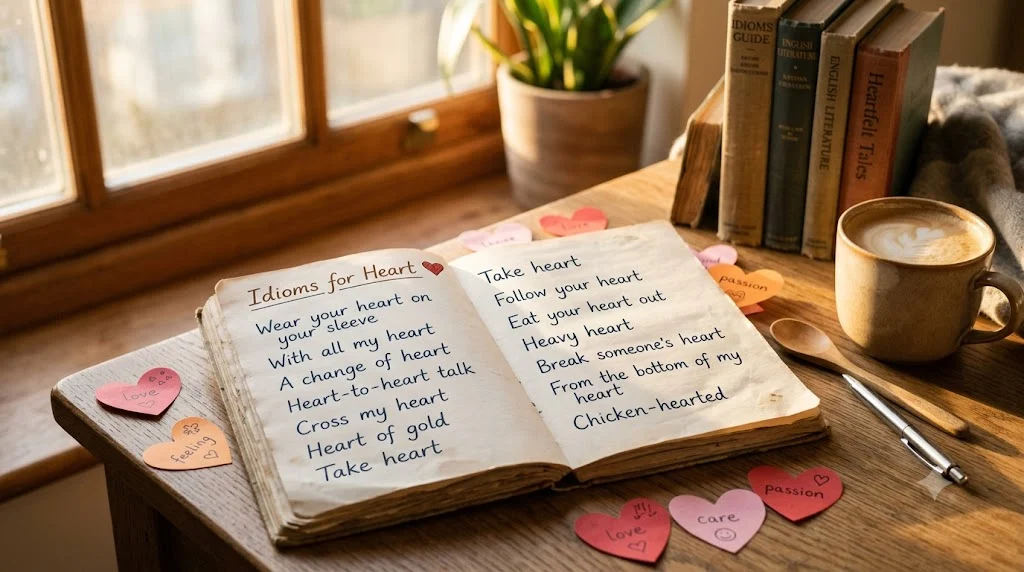 Idioms for Heart
Wear your heart on
your sleeve
With all my heart
A change of heart
Heart-to-heart talk
Cross my heart
Heart of gold
Take heart
Take heart
Follow your heart
Eat your heart out
Heavy heart
Break someone's heart
From the bottom of my
heart
Chicken-hearted
love
feeling
love
care
passion
passion
love
IDIOMS
GUIDE
ENGLISH
LITERATURE
ENGLISH LITERATURE
Heartfelt Tales